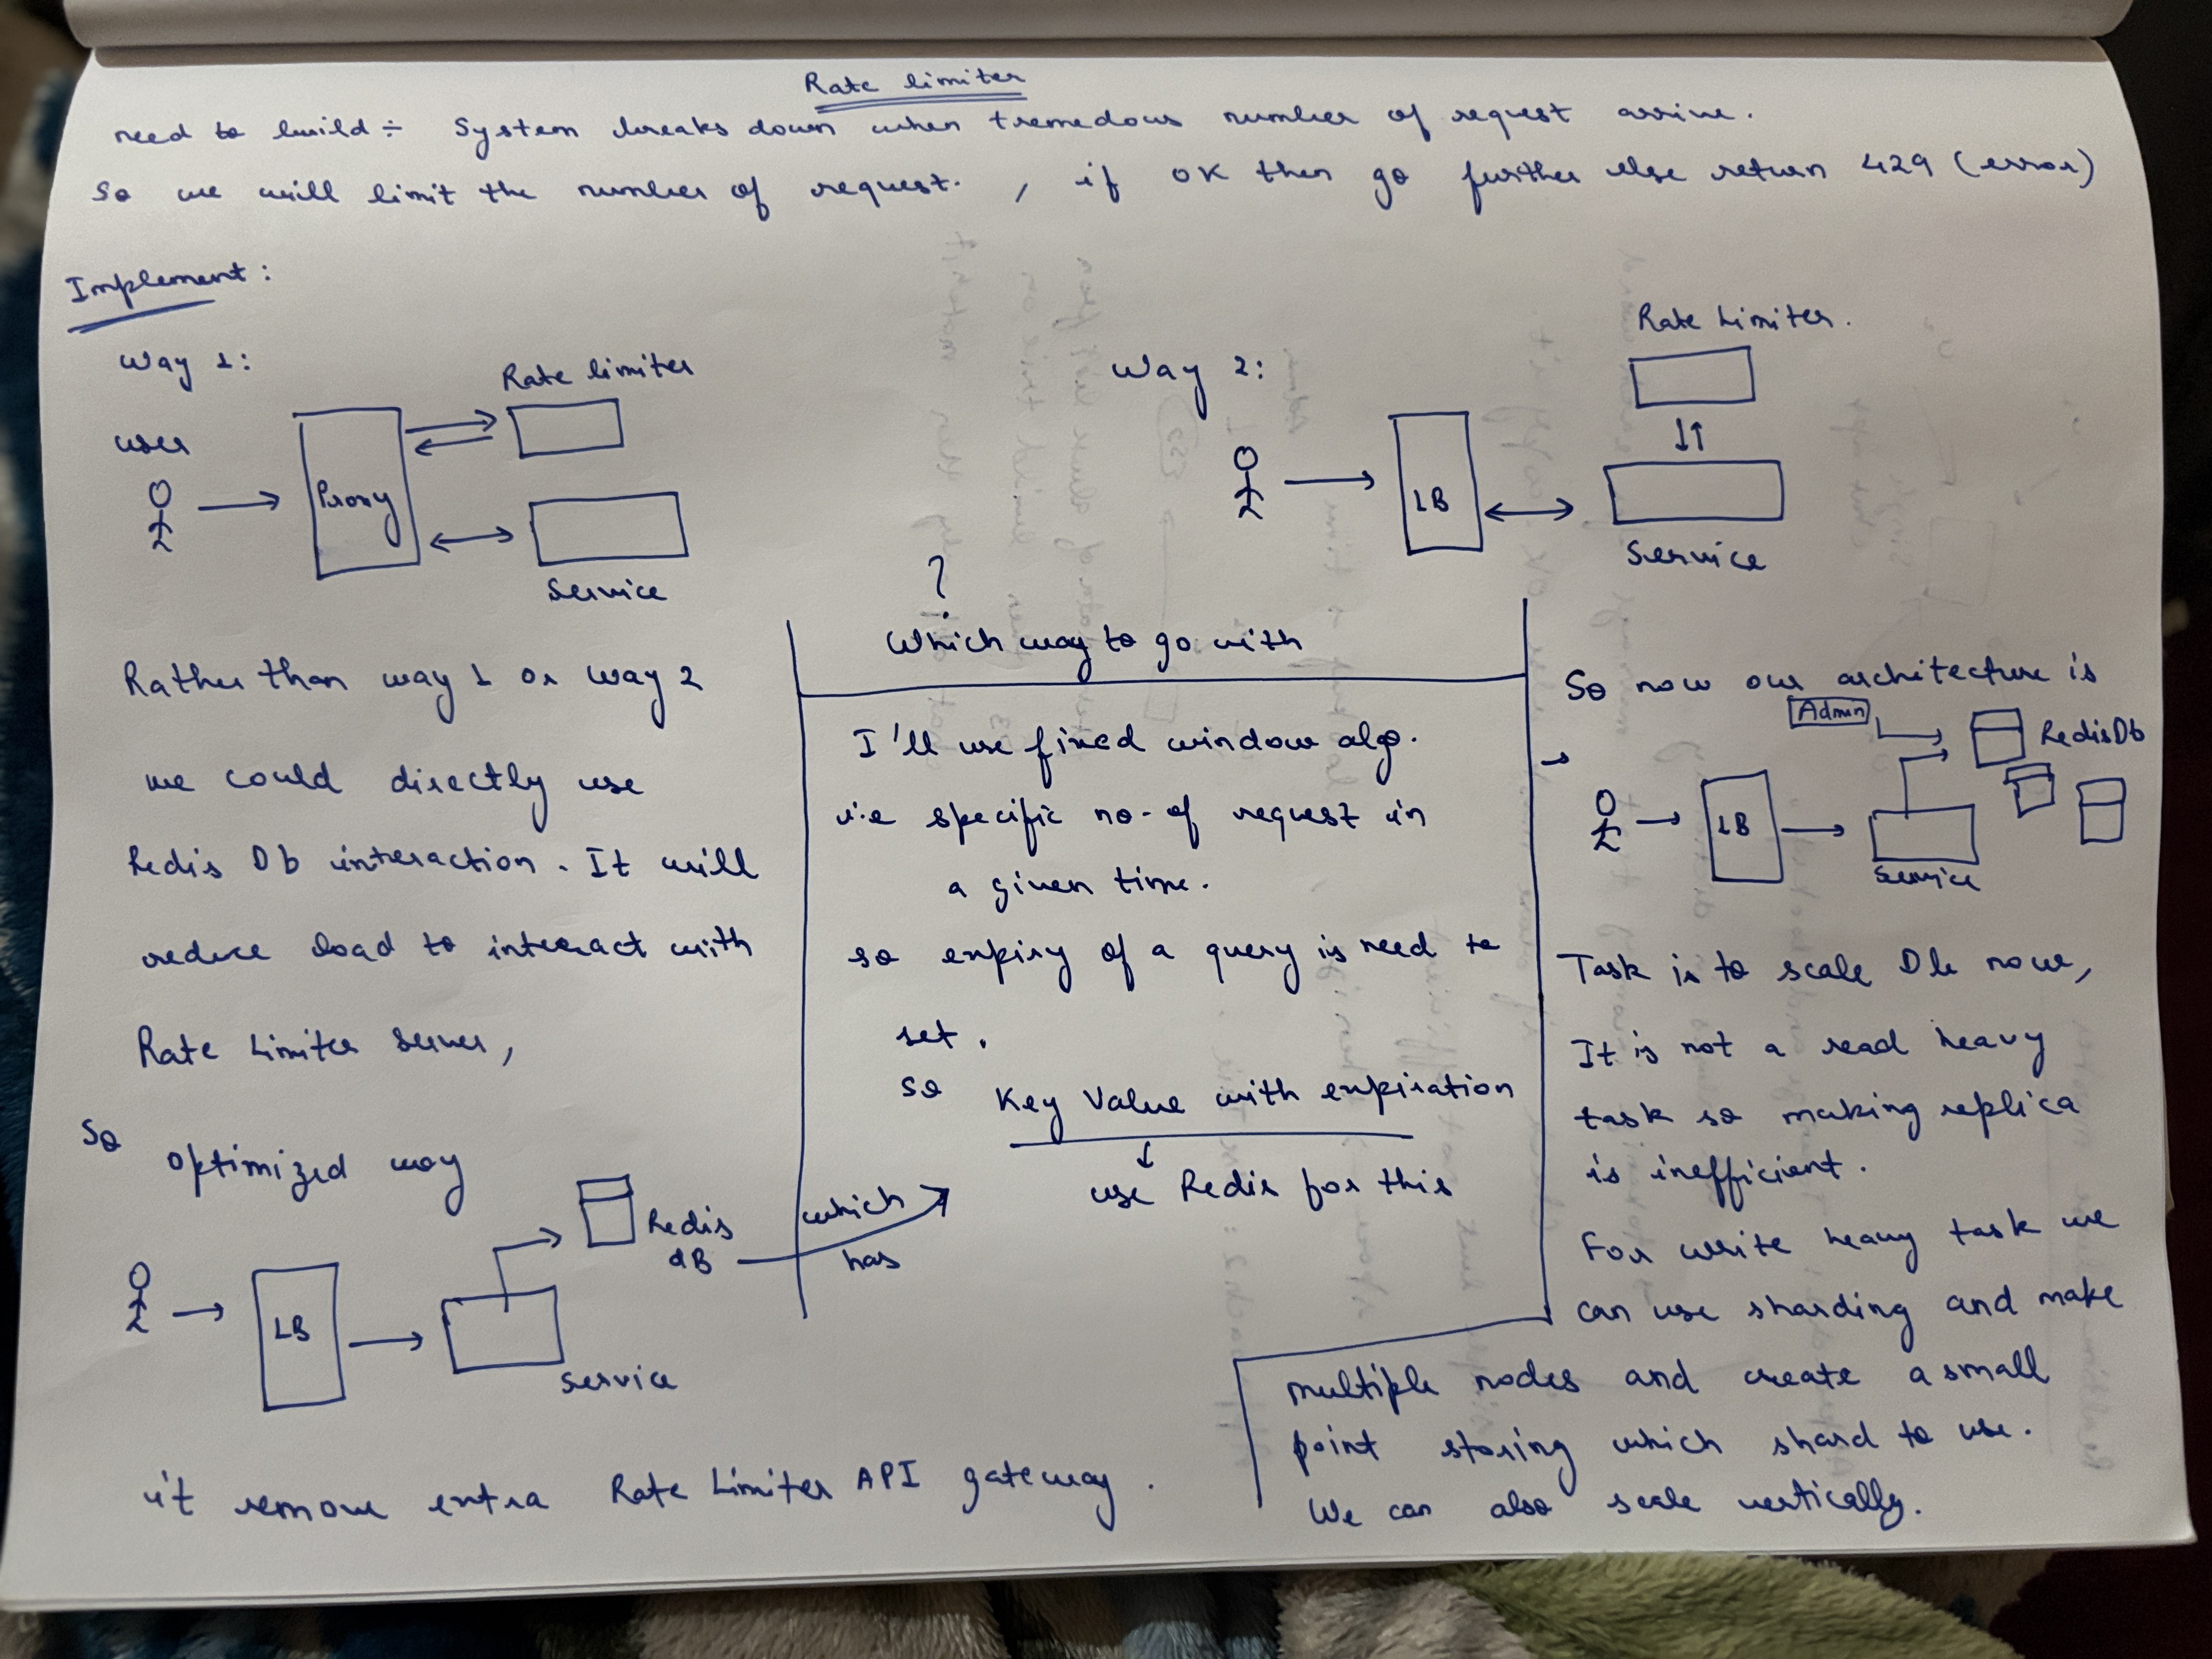 Rate limiter
need to build ÷ System breaks down when tremedous number of request arrive.
So we will limit the number of request. , if OK then go further else return 429 (error)
Implement :
Way 1:
user
Proxy
Rate limiter
Service
Way 2:
LB
Rate Limiter.
Service
?
Which way to go with
Rather than way 1 or way 2
we could directly use
Redis Db interaction. It will
reduce load to interact with
Rate Limiter Server,
So optimized way
LB
Service
Redis
dB
which
has
it remove extra Rate Limiter API gateway.
I'll use fixed window algo.
i.e specific no. of request in
a given time.
so expiry of a query is need to
set.
so Key Value with expiration
use Redis for this
So now our architecture is
Admin
Redis Db
LB
Service
Task is to scale Db now,
It is not a read heavy
task so making replica
is inefficient.
For write heavy task we
can use sharding and make
multiple nodes and create a small
point storing which shard to use.
We can also scale vertically.